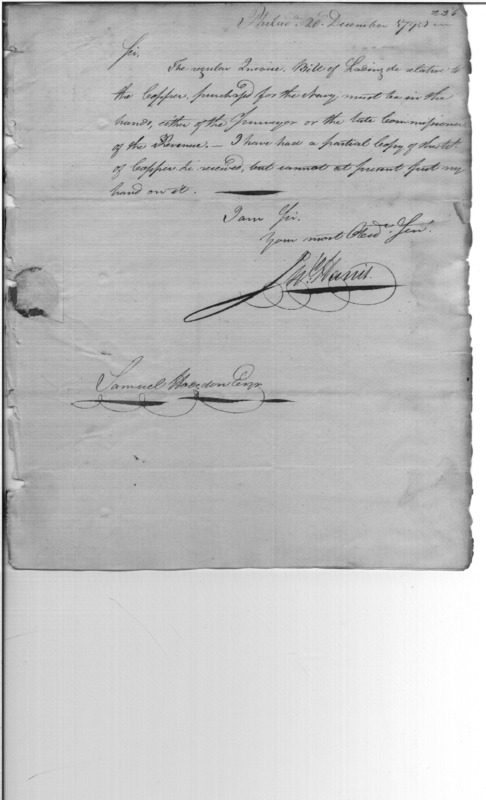 236
Philad. 26. December 179
Sir.
The regular Invoice. Bill of Lading &c relative to
the Copper, purchased for the Navy must be in the
hands, either of the Purveyor or the late Commissioner
of the Revenue. — I have had a partial Copy of the
of Copper &c received, but cannot at present put my
hand on it.
I am Sir.
Your most Obed.t Serv.t
Harris
Samuel Hodgdon Esqr